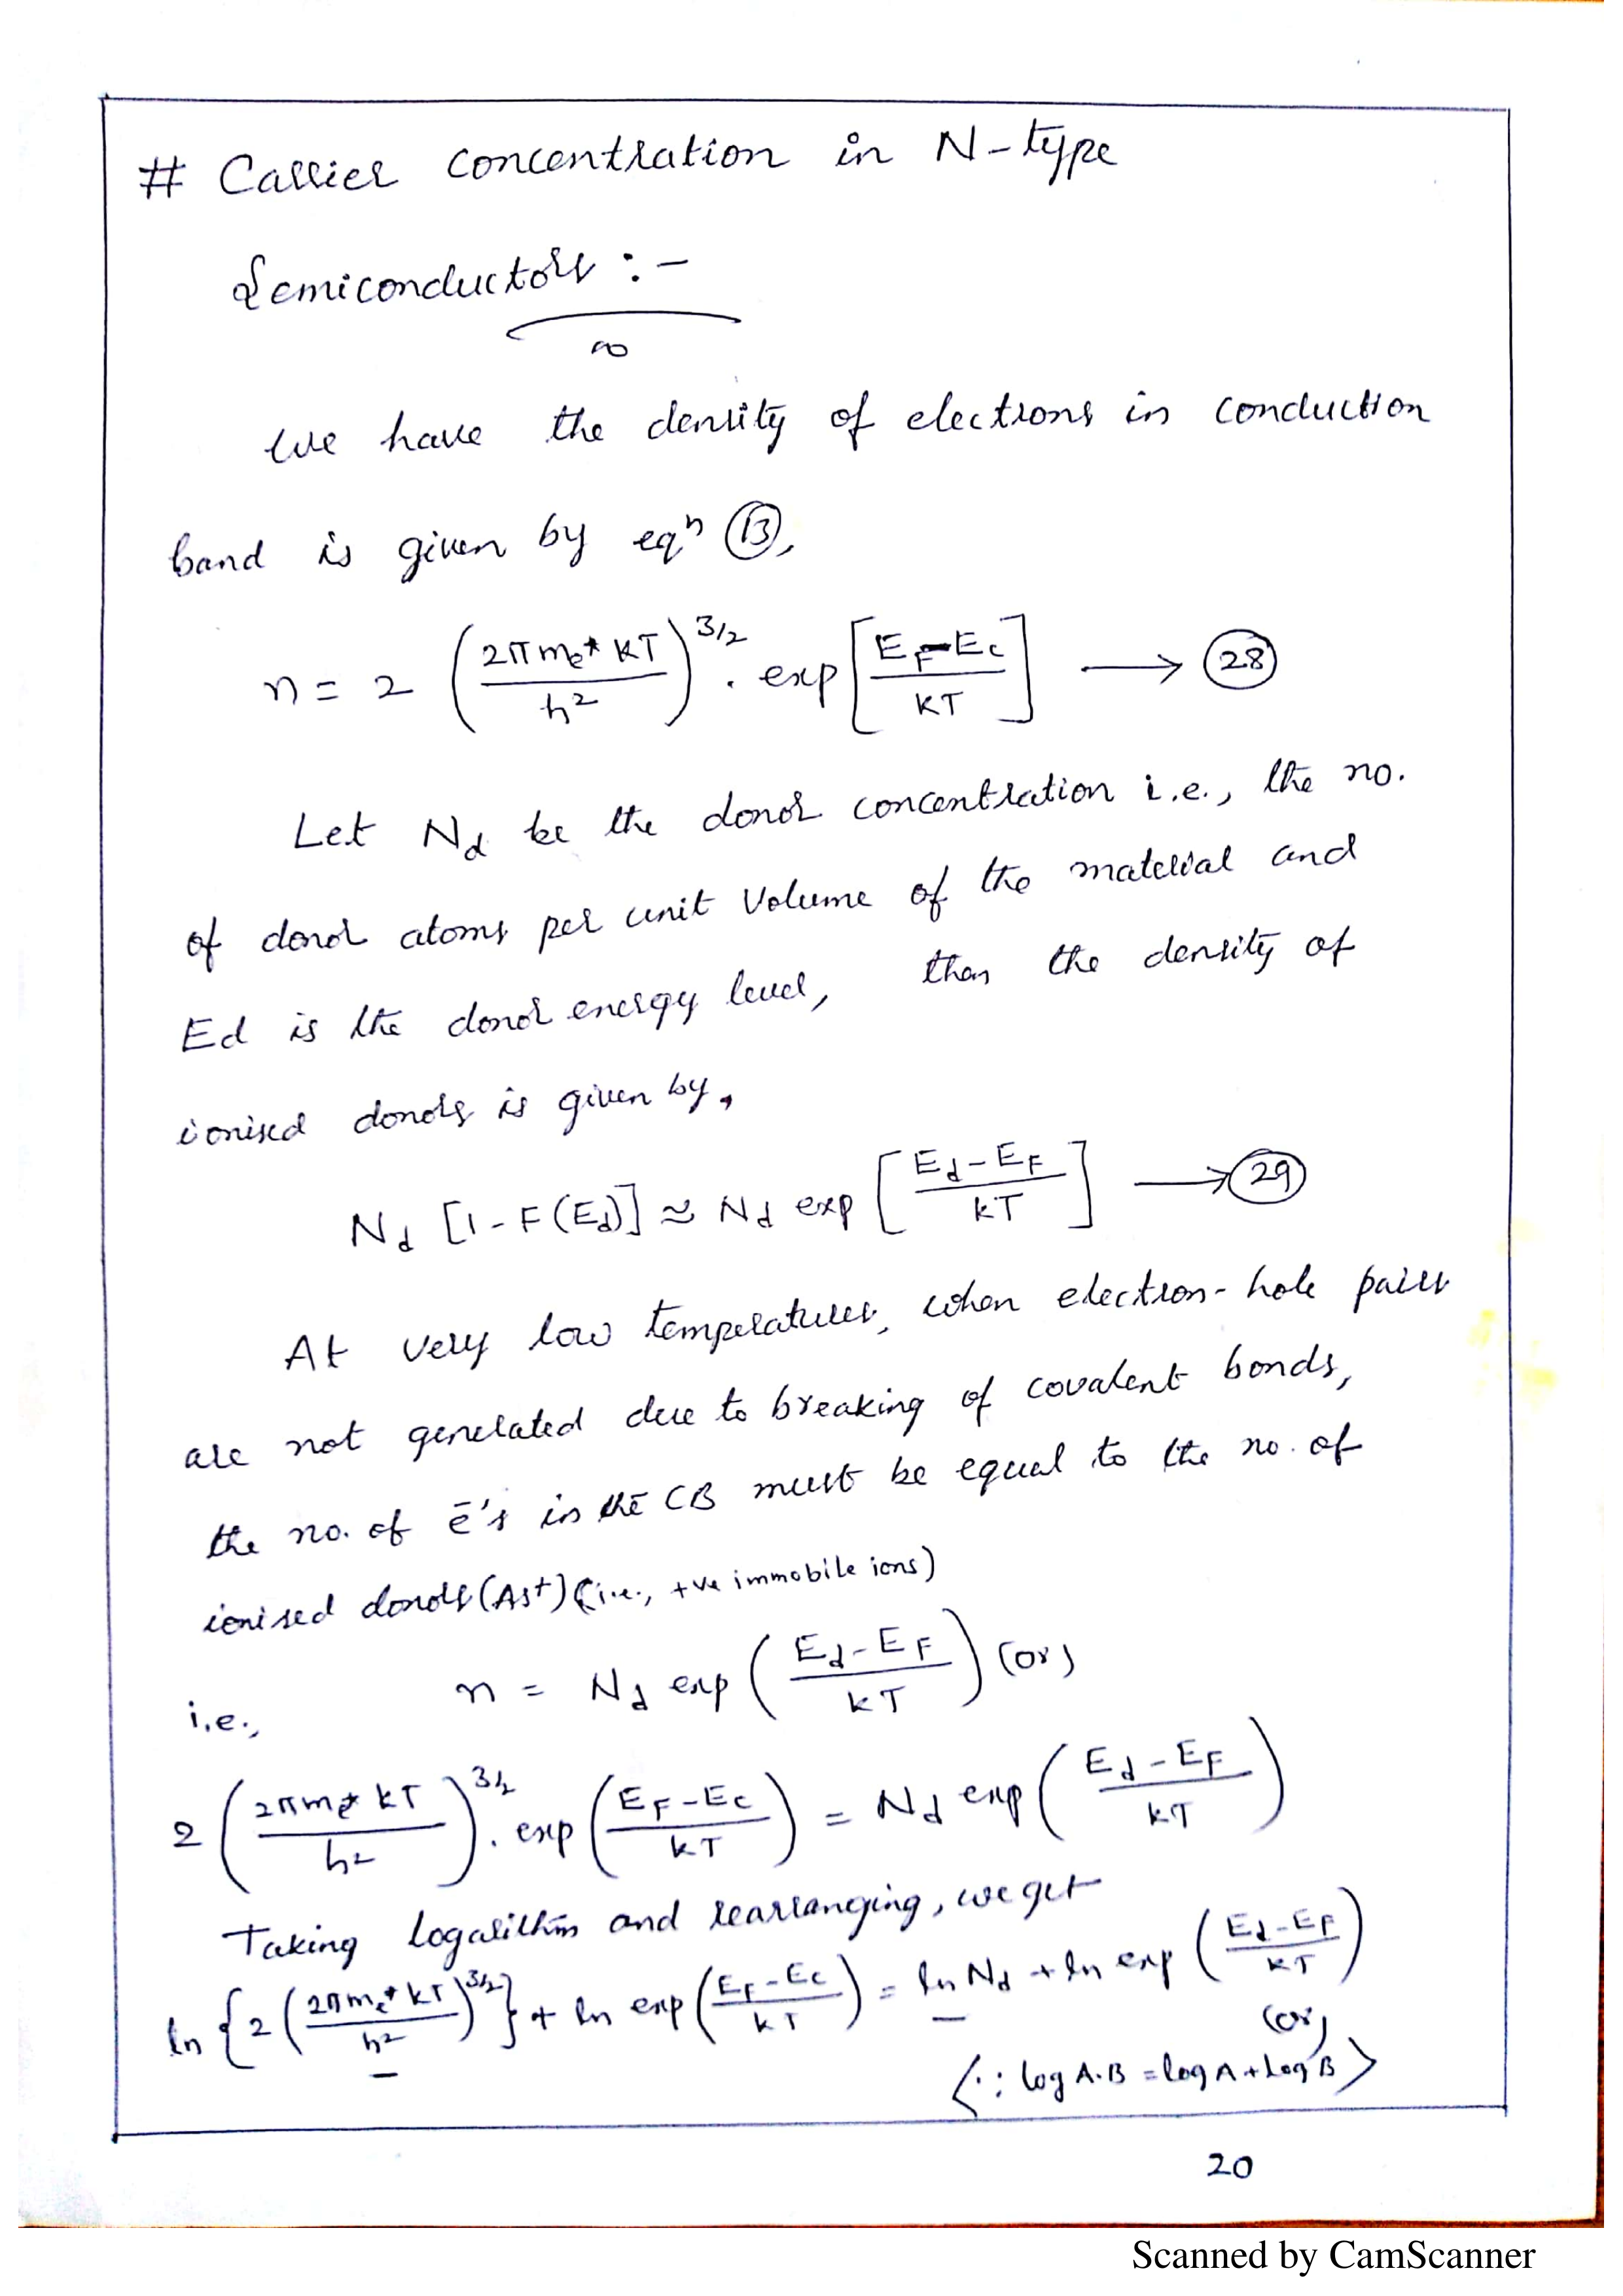 # Carrier concentration in N-type
Semiconductors :-
We have the density of electrons in conduction
band is given by eqⁿ (13),
n = 2 (2π mₑ* kT / h²)^3/2 . exp[E_F - E_c / KT] → (28)
Let N_d be the donor concentration i.e., the no.
of donor atoms per unit volume of the material and
Ed is the donor energy level, then the density of
ionised donors is given by,
N_d [1 - F(E_d)] ≈ N_d exp [E_d - E_F / kT] → (29)
At very low temperatures, when electron-hole pairs
are not generated due to breaking of covalent bonds,
the no. of ē's in the CB must be equal to the no. of
ionised donors (As+) (i.e., +ve immobile ions)
i.e., n = N_d exp (E_d - E_F / kT) (or)
2 (2π mₑ* kT / h²)^3/2 . exp (E_F - E_c / kT) = N_d exp (E_d - E_F / kT)
Taking logarithm and rearranging, we get
ln {2 (2π mₑ* kT / h²)^3/2} + ln exp (E_F - E_c / kT) = ln N_d + ln exp (E_d - E_F / kT)
(or)
<∵ log A.B = log A + log B>
20
Scanned by CamScanner